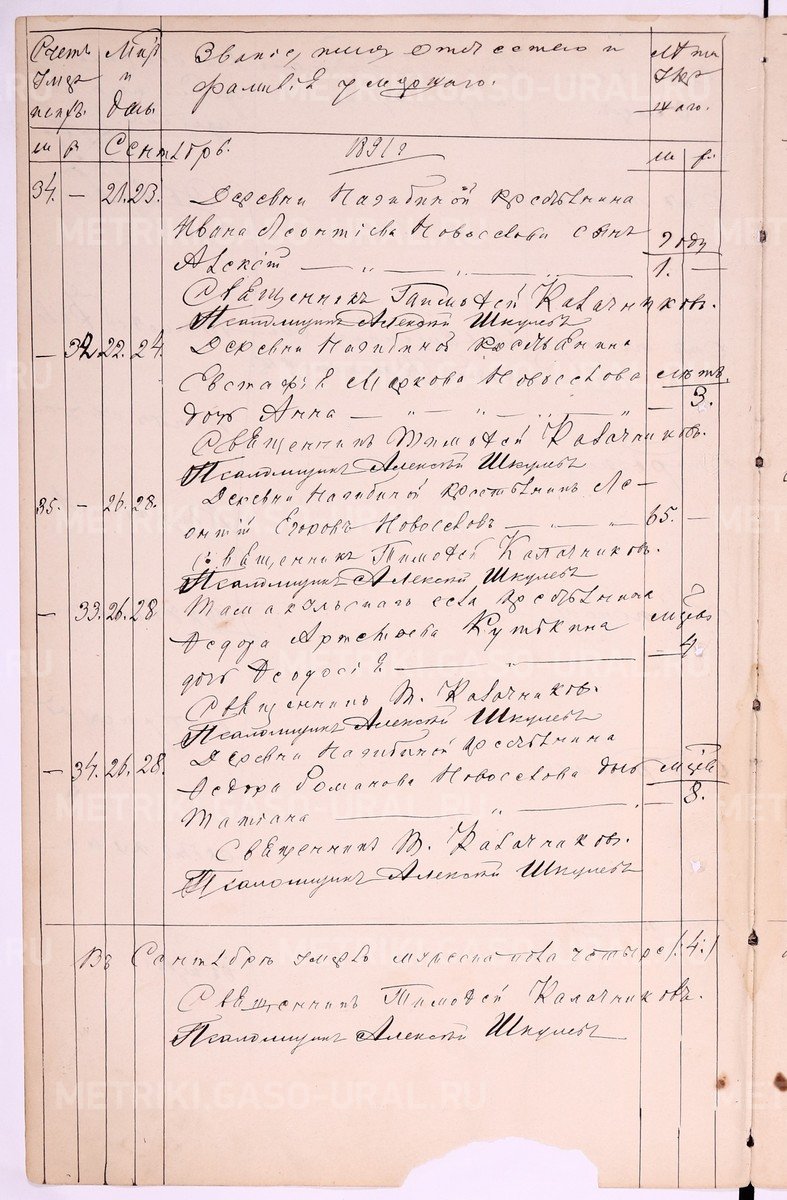 Счетъ Умер. Мѣс. и день Званіе, имя отчество и Лѣта
фамилія умершаго. Умер.
м ж Сентябрь 1891 г м ж
34. — 21. 23. Деревни Нагибиной крестьянина
Ивана Леонтіева Новоселова сынъ году
Алексѣй 1. —
Священникъ Тимоѳей Калачниковъ.
Псаломщикъ Алексѣй Шкулевъ
— 32 22. 24. Деревни Нагибиной крестьянина
Евстафія Маркова Новоселова лѣтъ
дочь Анна — 3.
Священникъ Тимоѳей Калачниковъ.
Псаломщикъ Алексѣй Шкулевъ
35. — 26. 28. Деревни Нагибиной крестьянинъ Ле-
онтій Егоровъ Новоселовъ 65. —
Священникъ Тимоѳей Калачниковъ.
Псаломщикъ Алексѣй Шкулевъ
— 33. 26. 28 Тамакульскаго села крестьянина
Ѳедора Артемьева Кутькина мѣсяц.
дочь Ѳеодосія — 4.
Священникъ Т. Калачниковъ.
Псаломщикъ Алексѣй Шкулевъ
— 34. 26. 28. Деревни Нагибиной крестьянина
Ѳедора Романова Новоселова дочь мѣсяц.
Татіана — 8.
Священникъ Т. Калачниковъ.
Псаломщикъ Алексѣй Шкулевъ
Въ Сентябрѣ умерло мужеска пола четыре /:4:/
Священникъ Тимоѳей Калачниковъ.
Псаломщикъ Алексѣй Шкулевъ
METRIKI.GASO-URAL.RU